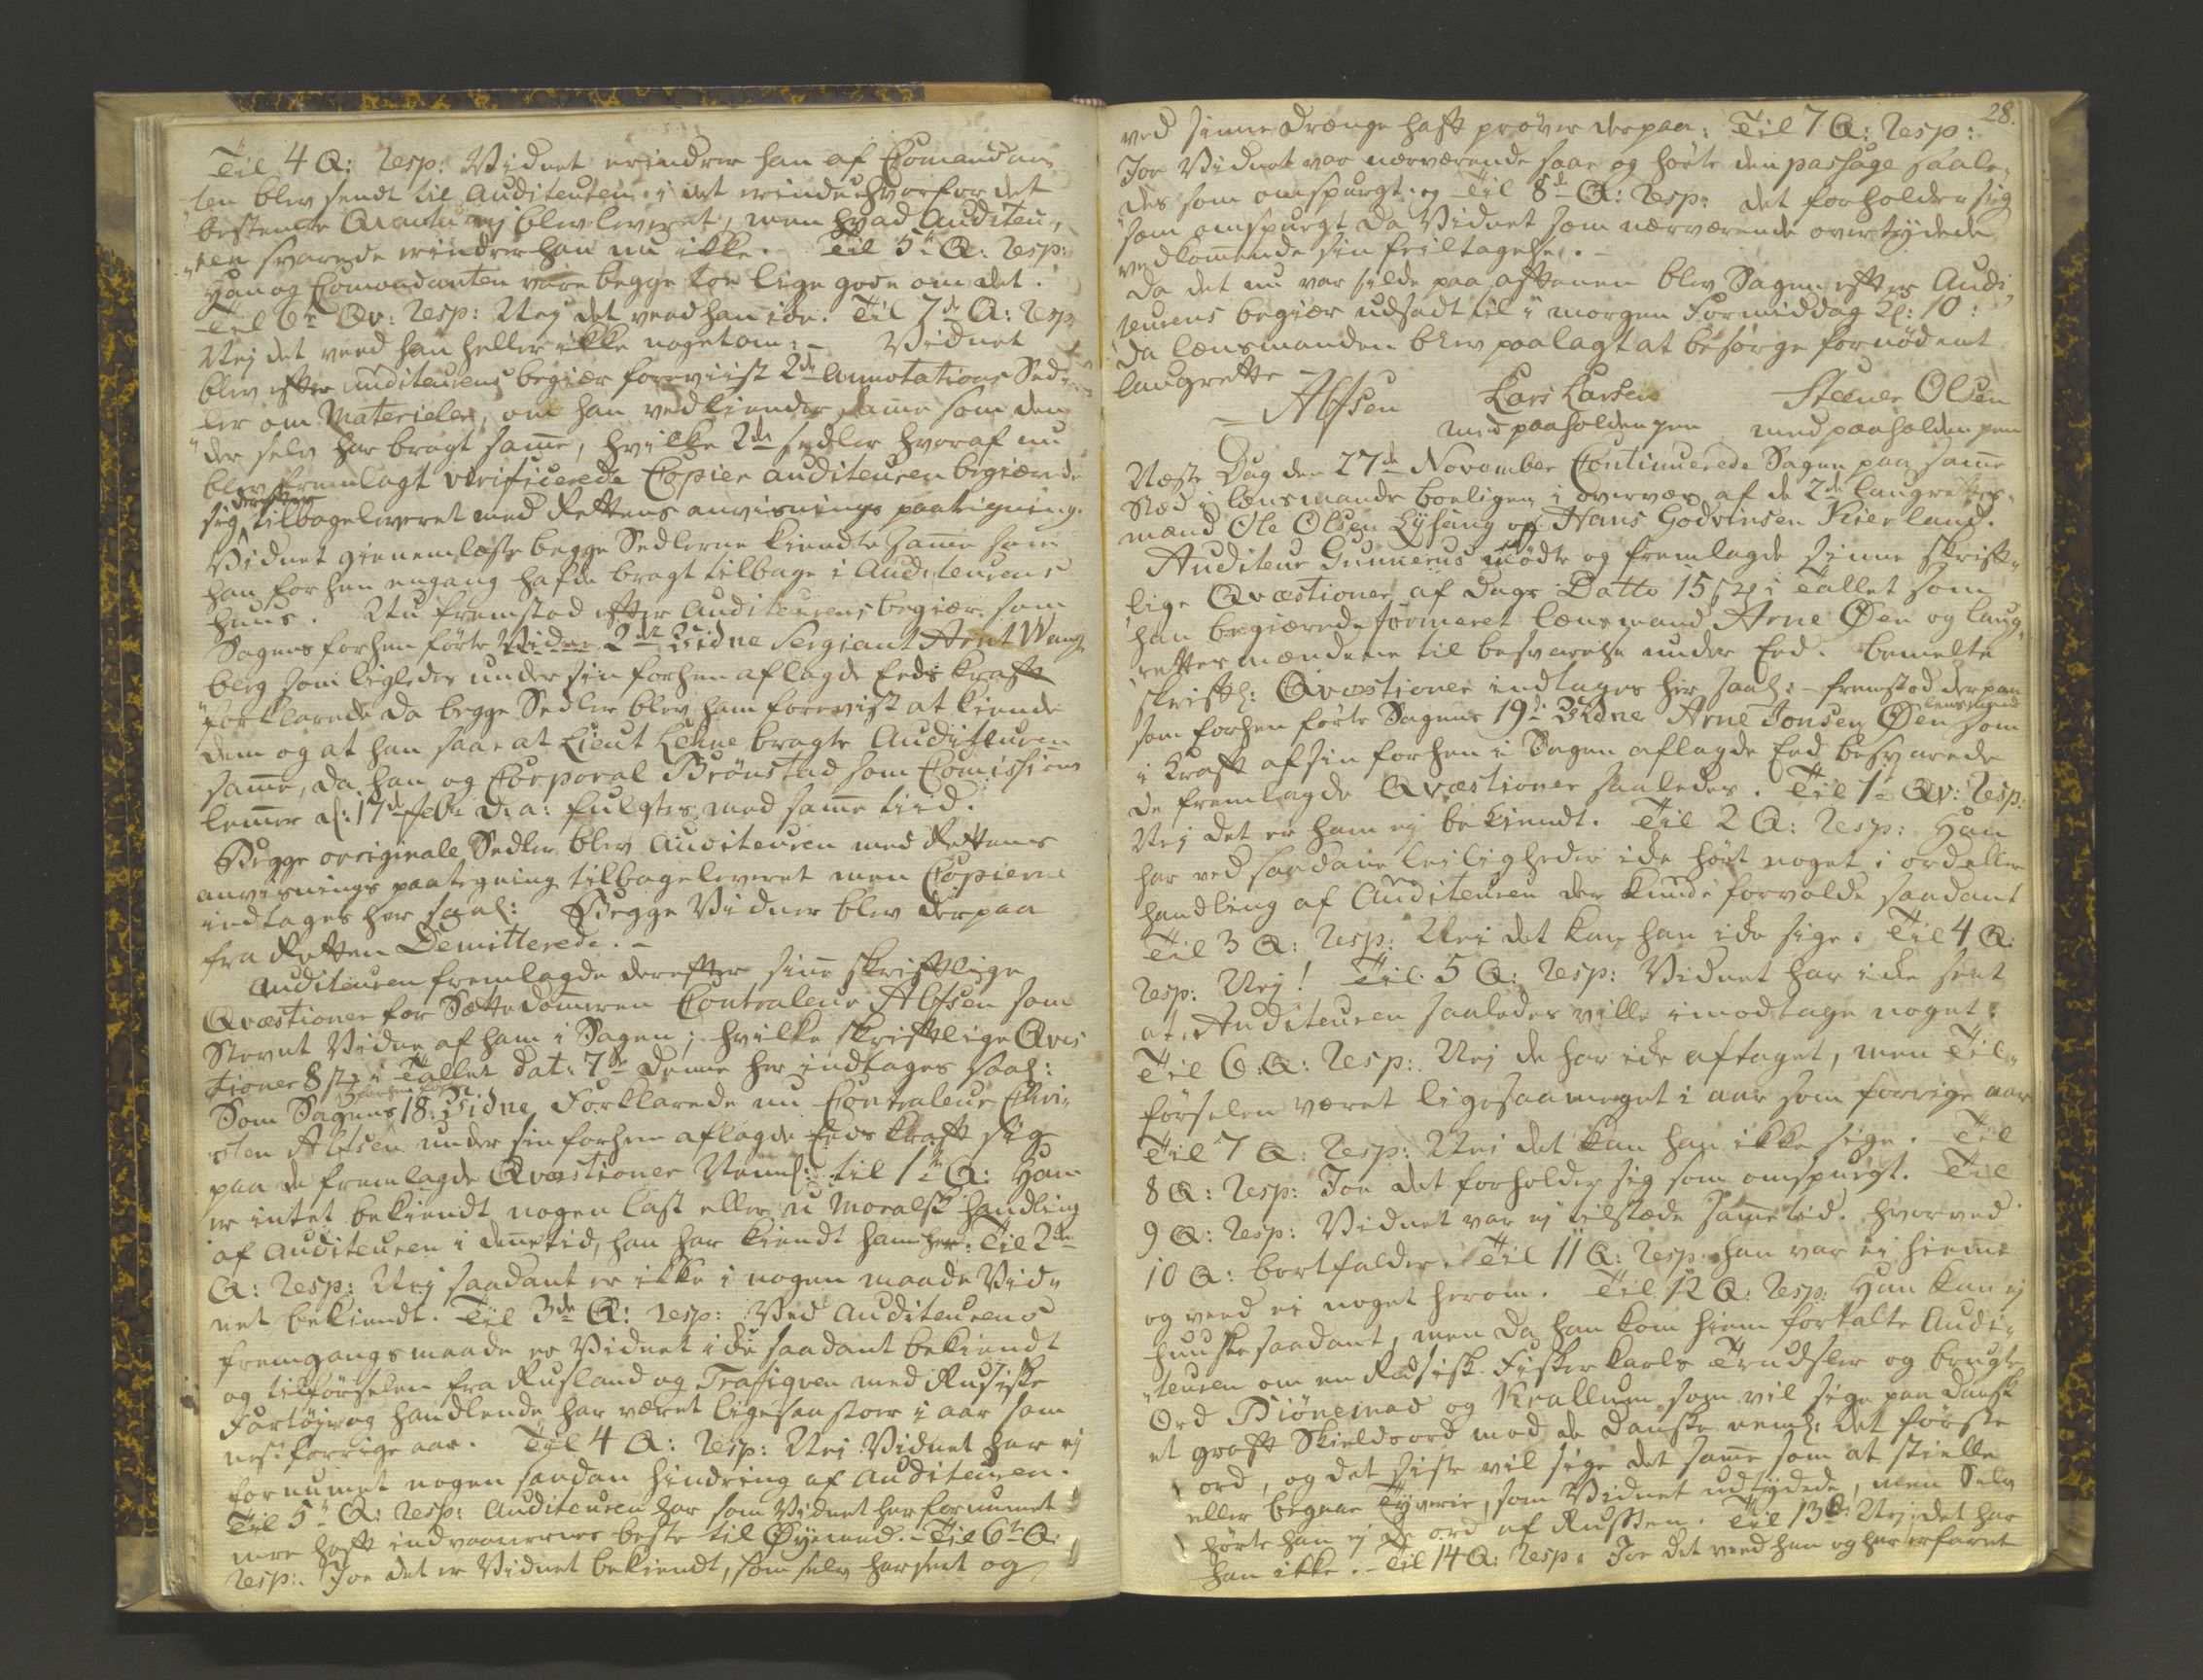 Til 4 Q: Resp: Vidnet erindrer han af Comandan¬
ten blev sendt til Auditeuren i det erinde hvorfor det
bestemte Qvantu ej blev leveret, men hvad Auditeu¬
ren svarede erindrer han nu ikke. Til 5te Q: Resp:
Han og Comandanten vare begge toe lige gode om det.
Til 6te Qv: Resp: Nej det veed han ikke. Til 7de Q: Resp
Nej det veed han heller ikke noget om: - Vidnet
blev efter Auditeurens begiær foreviist 2de Annotations Sed¬
ler om Materialer, om han vedkiender samme som den
der selv har bragt samme, hvilke 2de sedler hvoraf nu
blev fremlagt verificerede Copier Auditeuren begiærede
sig derefter tilbageleveret med Rettens anvisnings paategning.
Vidnet gienemlæste begge Sedlerne kiendte samme som
han forhen engang hafde bragt tilbage i Auditeurens
huus. Nu fremstod efter Auditeurens begiær som
Sagens forhen førte Vidne 2det Vidne Sergiant Arnt Wang
berg som ligeledes under sin forhen aflagde Eeds kraft
forklarede da begge Sedler blev ham forevist at kiende
dem og at han saae at Lieut Lehne bragte Auditeuren
samme, da han og Corporal Brønstad som Comissions
lemmer d: 17de Febr d: a: fulgtes med samme tiid.
Begge originale Sedler blev Auditeuren med Rettens
anvisnings paategning tilbageleveret men Copierne
indtages her saal: Begge Vidner blev derpaa
fra Retten Demitterede. -
Auditeuren fremlagde derefter sine skriftlige
Qvæstioner for Sættedommeren Contraleur Albsen som
Stevnt Vidne af ham i Sagen; hvilke skriftlige Qvæs
tioner 8 st: i Tallet dat: 7de denne her indtages saal:
Som Sagens forhen førte 18. Vidne Forklarede nu Contraleur Chri¬
sten Albsen under sin forhen aflagde Eeds kraft sig
paa de fremlagde Qvæstioner Neml: til 1te Q: Ham
er intet bekiendt nogen last eller u Moralsk handling
af Auditeuren i den tid, han har kiendt ham her. Til 2de
Q: Resp: Nej saadant er ikke i nogen maade Vid¬
net bekiendt. Til 3de Q: resp: Ved Auditeurens
fremgangsmaade er Vidnet ikke saadant bekiendt
og tilførselen fra Rusland og Trafiqven med Rusiske
Fartøjer og handlende har været ligesaa stor i aar som
nest forrige aar. Til 4 Q: Resp: Nei Vidnet har ej
fornummet nogen saadan hindring af Auditeuren.
Til 5te Q: Resp: Auditeuren har som Vidnet har fornummet
mere haft indvaanernes beste til Øyemed. - Til 6te Q:
Resp: Joe det er Vidnet bekiendt, som selv har seet og
28.
ved sinne Drenge haft prøver derpaa: Til 7 Q: Resp:
Joe Vidnet var nærværende saae og hørte den passage saale¬
des som omspurgt. og Til 8de Q: Resp: det forholder sig
som omspurgt da Vidnet som nærværende overtydede
vedkommende sin feiltagelse. -
Da det nu var silde paa aftenen blev Sagen efter Audi¬
teurens begiær udsadt til i morgen Formiddag Kl: 10:
da lensmanden blev paalagt at besørge fornødent
laugrette -
Albsen Lars Larsen Steener Olsen
med paaholden pen med paaholden pen
Næste Dag den 27de November Continuerede Sagen paa samme
Stæd i lensmands boeligen i overvær af de 2de laugrettes¬
mænd Ole Olsen Lysung og Hans Godvinsen Kierland.
Auditeur Gunnerus mødte og fremlagde sinne skrift¬
lige Qvæstioner af dags Datto 15 st: i Tallet som
han begiærede formeret lensmand Arne Øen og laug¬
rettes mændene til besvarelse under Eed. bemelte
skriftl: Qvæstioner indtages her saal: - fremstod derpaa
som forhen førte Sagens 19de Vidne Arne Jonsen Øen lensmand som
i kraft af sin forhen i Sagen aflagde Eed besvarede
de fremlagde Qvæstioner saaledes. Til 1te Qv: Resp:
Nej det er ham ej bekiendt. Til 2 Q: Resp: Han
har ved saadane leiligheder ikke hørt noget i ord eller
handling af Auditeuren der kunde forvolde saadant
Til 3 Q: Resp: Nei det kan han ikke sige. Til 4 Q:
Resp: Nej! Til 5 Q: Resp: Vidnet har ikke seet
at Auditeuren saaledes ville imodtage noget.
Til 6 Q: Resp: Nej de har ikke aftaget, men Til¬
førselen været ligesaa meget i aar som forrige aar
Til 7 Q: Resp: Nei det kan han ikke sige. Til
8 Q: Resp: Joe det forholder sig som omspurgt. Til
9 Q: Resp: Vidnet var ej tilstæde sammetid. hvorved
10 Q: bortfalder. Til 11 Q: Resp: han var ei hieme
og veed ei noget herom. Til 12 Q: Resp: Han kan ej
huuske saadant, men da han kom hiem fortalte Audi¬
teuren om en Rusisk Fisker karls Trudsler og brugte
Ord Biønemad og Krallum som vil sige paa Dansk
et groft Skieldsord mod de Danske neml: det første
ord, og det siste vil sige det samme som at stielle
eller begaae Tyverie, som Vidnet udtydede, men Selv
hørte han ej de ord af Russen. Til 13 Q: Nej det har
han ikke. - Til 14 Q: Resp: Joe det veed han og har erfaret